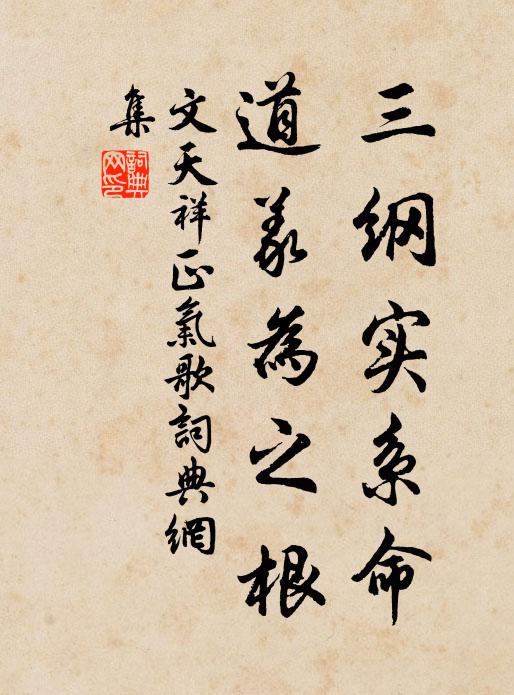 三纲实系命
道义為之根
文天祥正氣歌詞典網
集
詞典网印